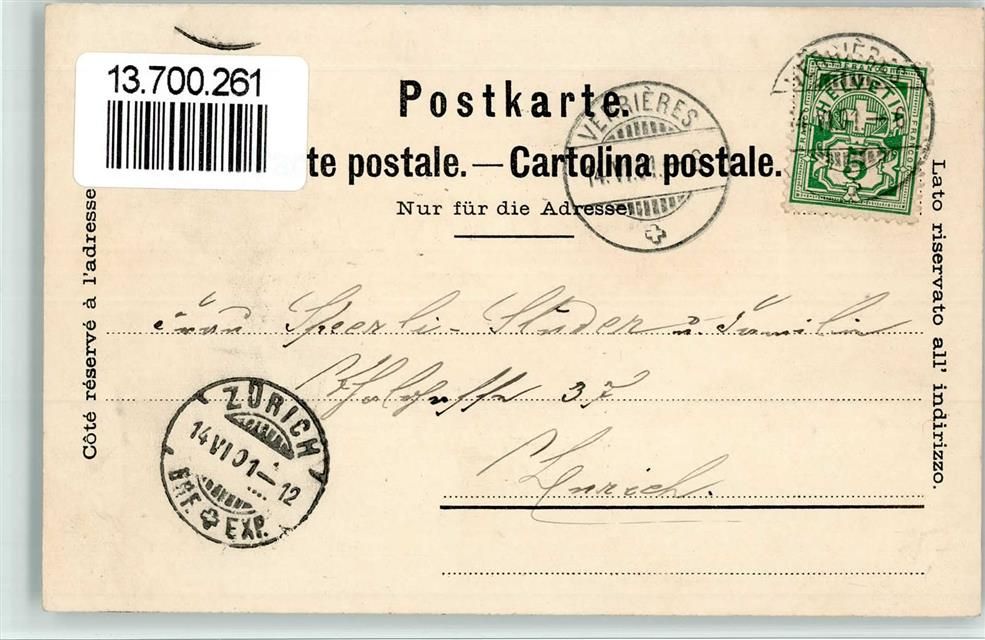 13.700.261
Postkarte.
te postale. — Cartolina postale.
Nur für die Adresse
Côté réservé à l'adresse
Lato riservato all' indirizzo.
VERRIÈRES
14.VI.01
VERRIÈRES
HELVETIA
FRANCO
5
Frau Speerli-Studer u. Familie
37
Zürich.
ZÜRICH
14 VI 01 – 12
BRF. EXP.